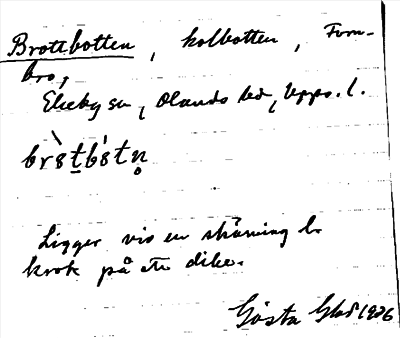 Brottbotten, kolbotten, Forn-
bro,
Ekeby sn, Olands hd, Upps. l.
Ligger vid en skärning l.
krok på ett dike.
Gösta 1926